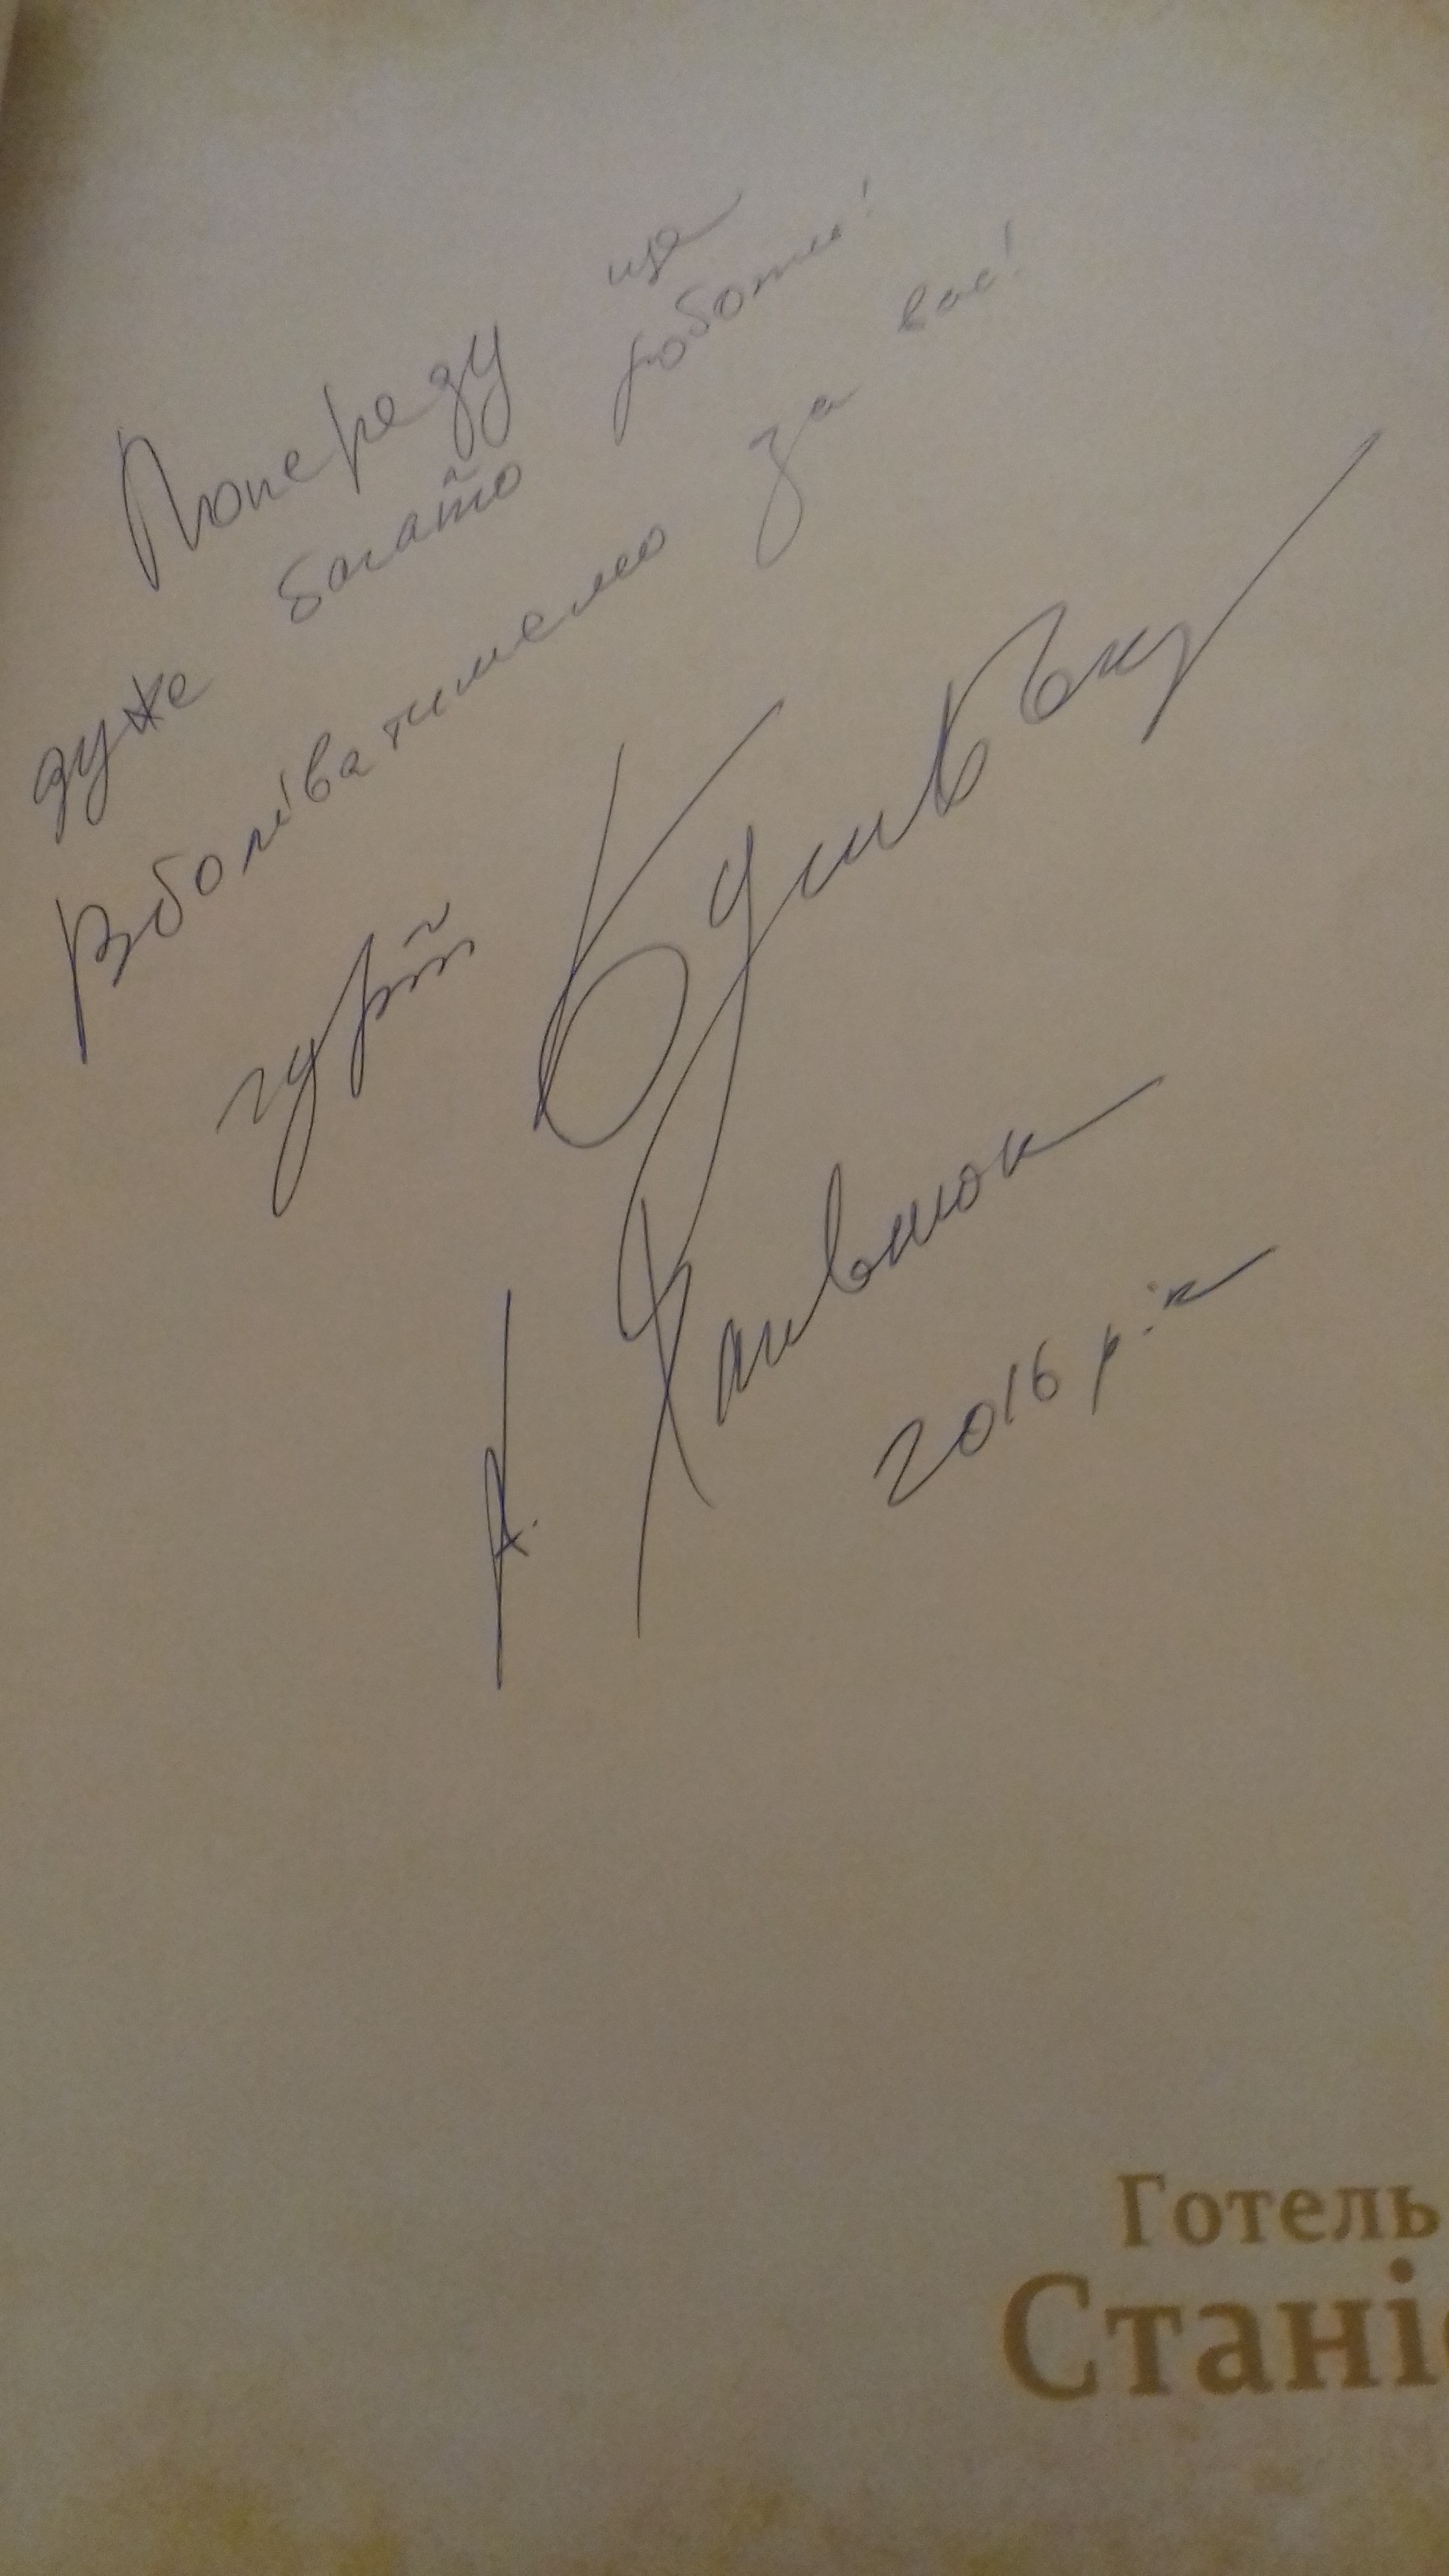 Попереду ще
дуже багато роботи!
Вболіватимемо за вас!
гурт Бумбокс
А. Хливнюк
2016 рік
Готель
Стані